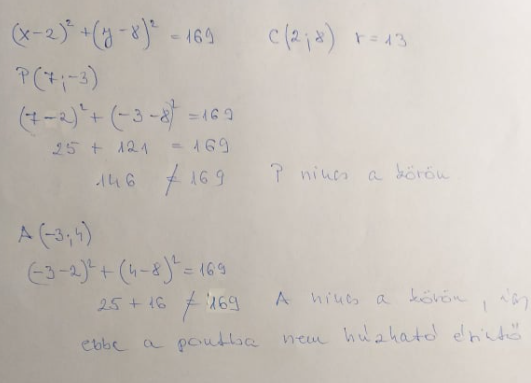 (x-2)² + (y-8)² = 169 C(2;8) r = 13
P(7;-3)
(7-2)² + (-3-8)² = 169
25 + 121 = 169
146 ≠ 169 P nincs a körön
A(-3;4)
(-3-2)² + (4-8)² = 169
25 + 16 ≠ 169 A nincs a körön, így
ebbe a pontba nem húzható érintő